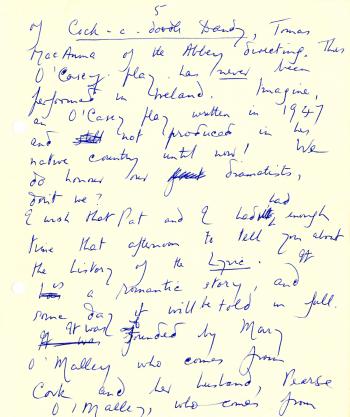 5
of Cock-a-doodle Dandy, Tomas
MacAnna of the Abbey directing. This
O'Casey play has never been
performed in Ireland. Imagine,
an O'Casey play written in 1947
and not produced in his
native country until now! We
do honour our dramatists,
don't we?
I wish that Pat and I had had enough
time that afternoon to tell you about
the history of the Lyric. It
is a romantic story, and
some day it will be told in full.
It was founded by Mary
O'Malley who comes from
Cork and her husband, Pearse
O'Malley, who comes from